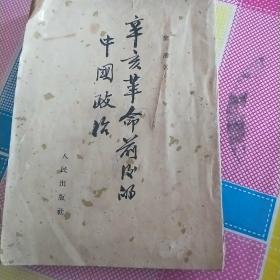 黎澍著
辛亥革命前后的
中國政治
人民出版社